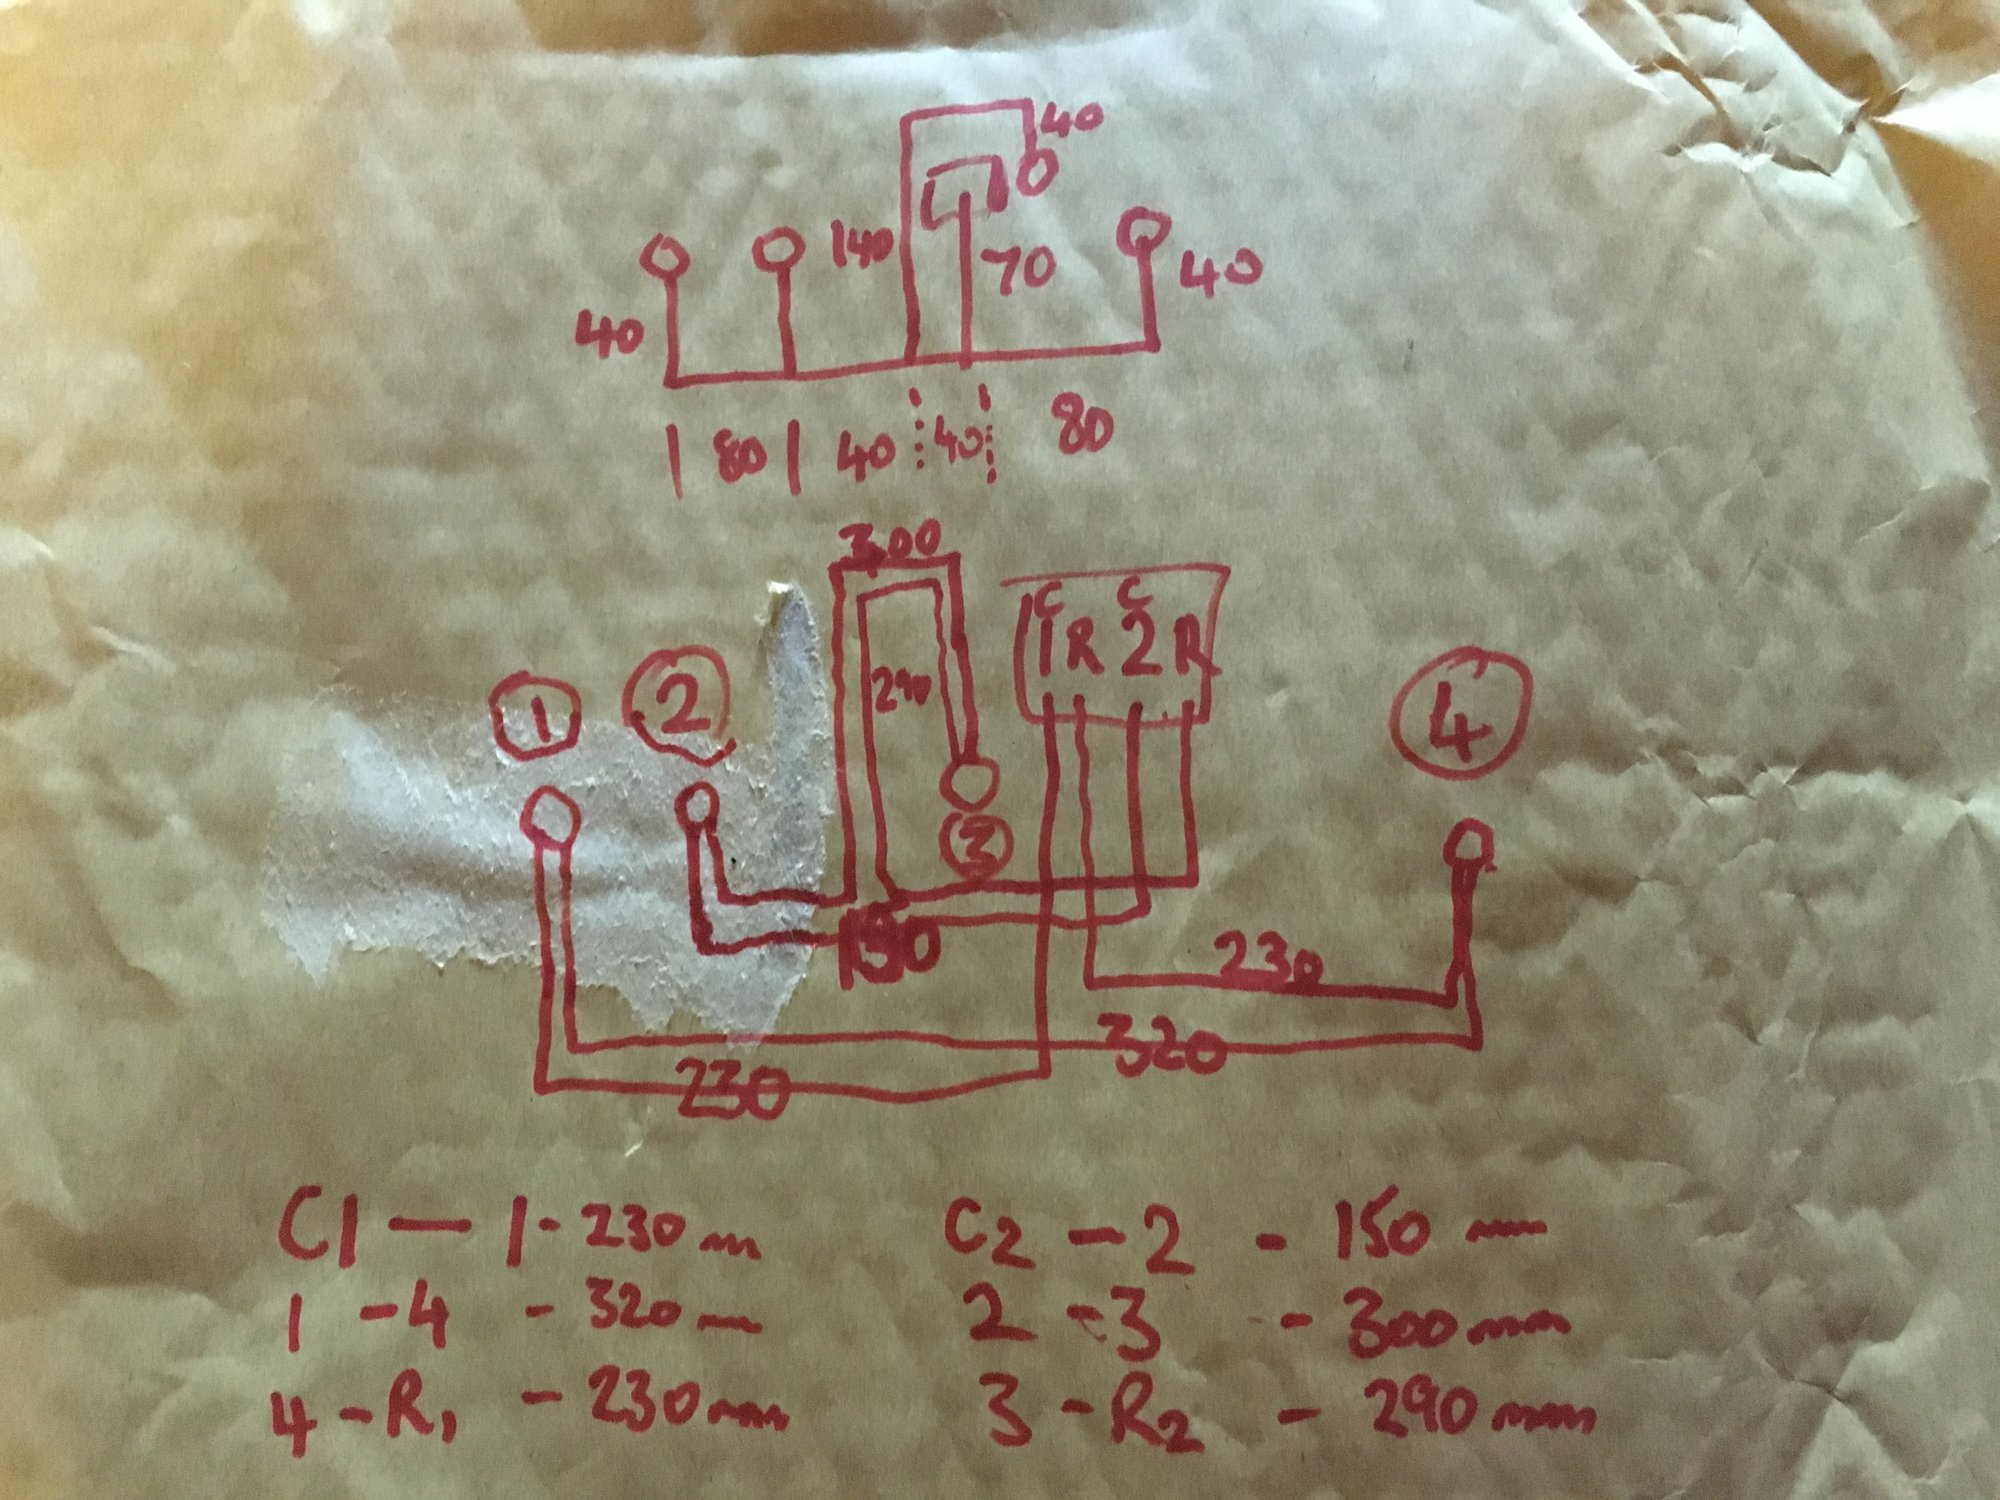 40
140
70
40
40
80 40 40 80
300
C C
1 R 2 R
290
1 2 4
3
150
230
320
230
C1 — 1 - 230 mm
1 - 4 - 320 mm
4 - R1 - 230 mm
C2 - 2 - 150 mm
2 - 3 - 300 mm
3 - R2 - 290 mm